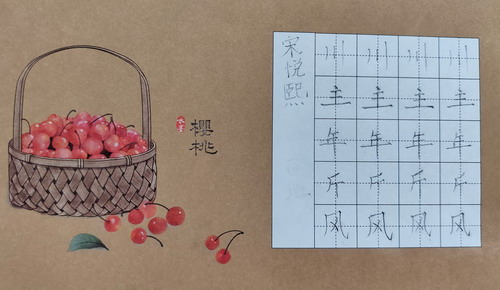 樱桃
宋悦熙
川 川 川 川
主 主 主 主
年 年 年 年
斤 斤 斤 斤
风 风 风 风